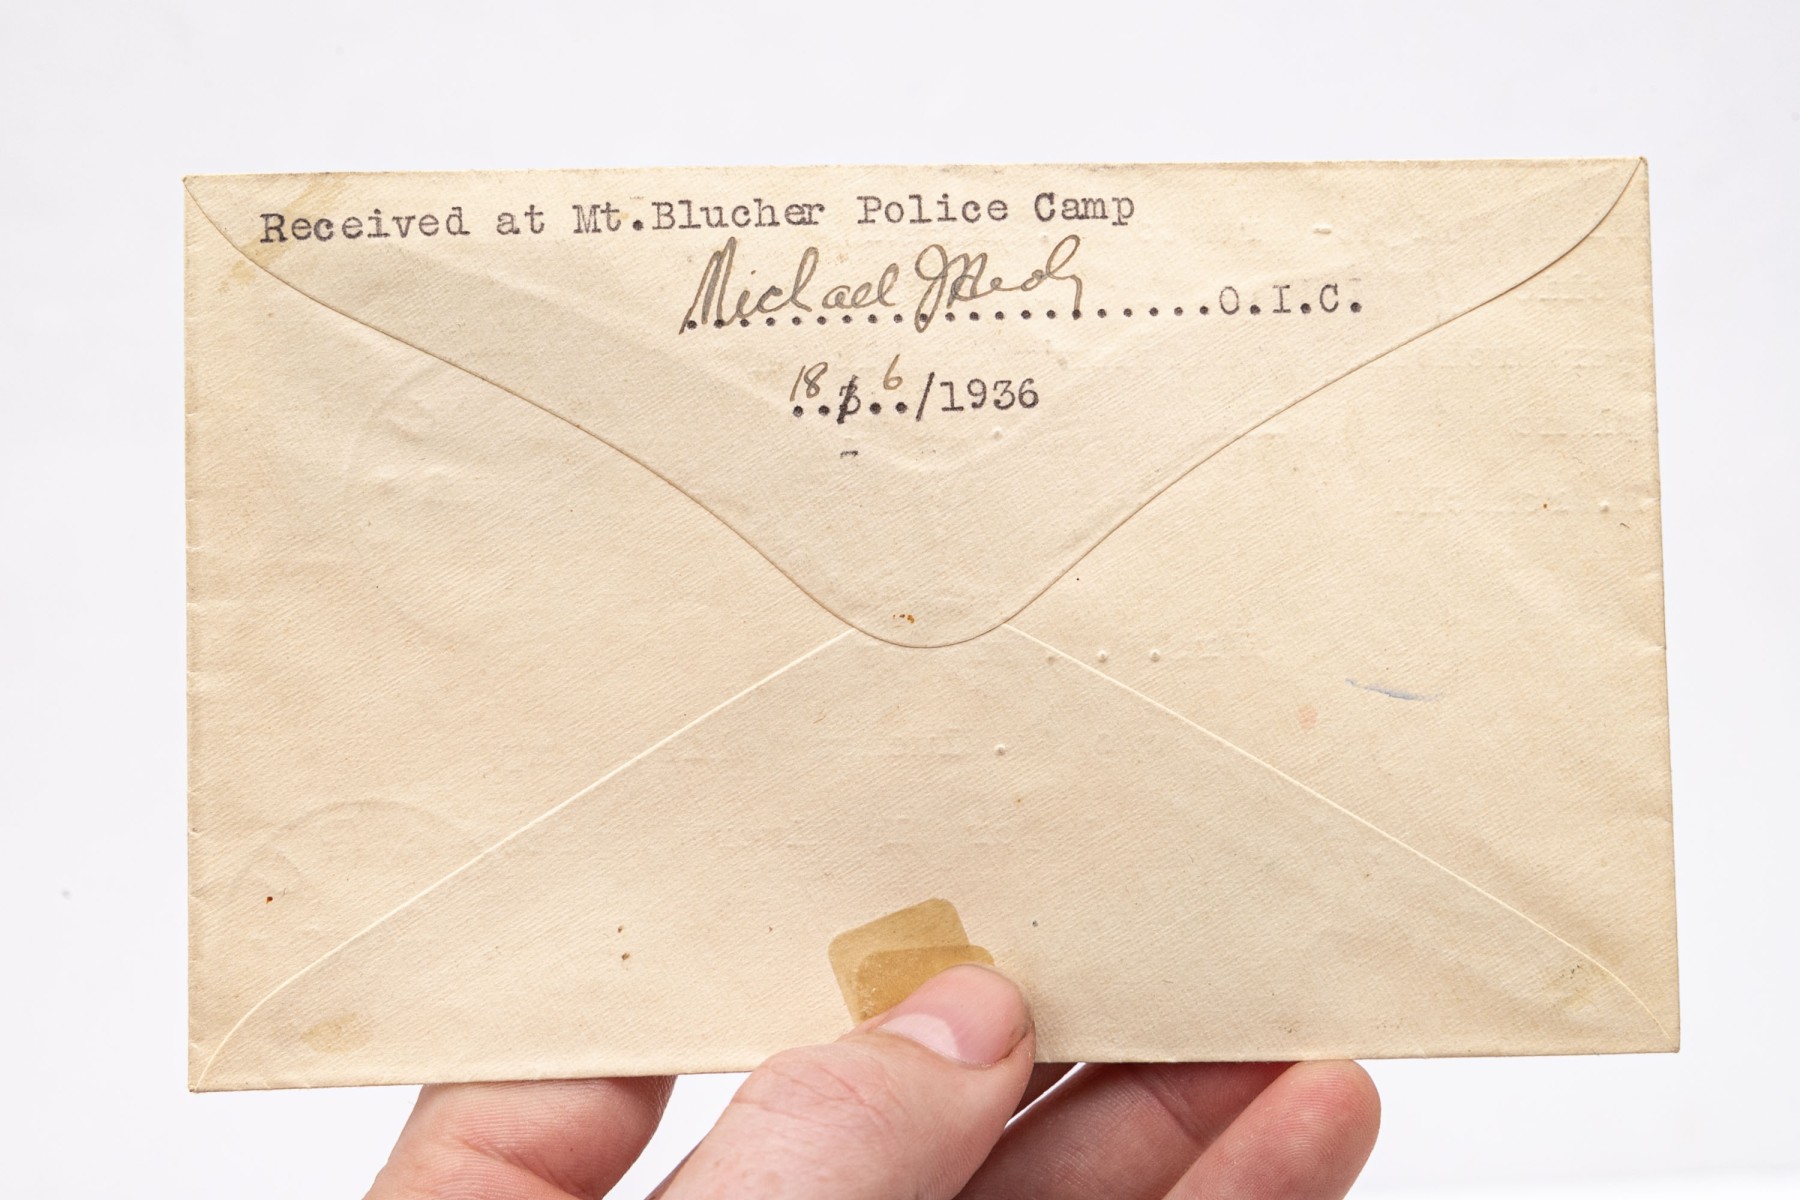 Received at Mt.Blucher Police Camp
Michael J ....................O.I.C.
18/6/1936